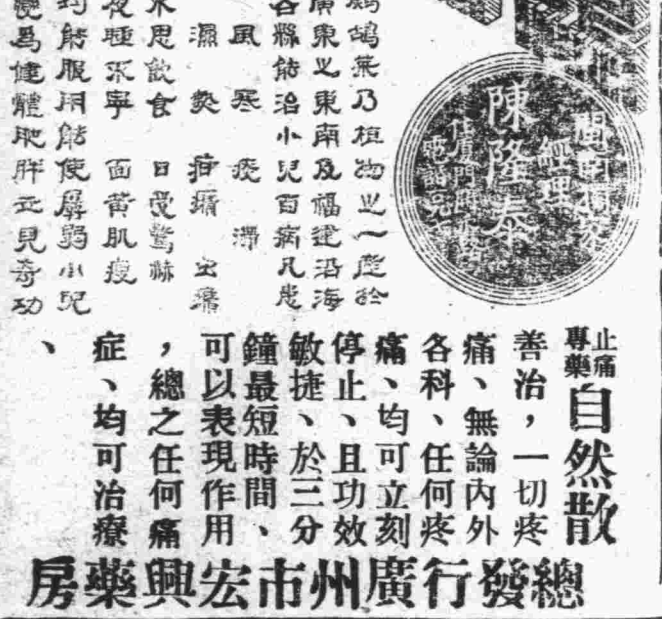 鷓鴣菜乃植物之一產於
廣東之東南及福建沿海
各縣能治小兒百病凡患
風寒痰滯
濕熱疳積虫積
不思飲食 日受驚嚇
夜睡不寧 面黃肌瘦
均能服用能使孱弱小兒
變爲健體肥胖立見奇功
閩南獨家
經理
陳隆泰
止痛
專藥
自然散
善治,一切疼
痛、無論內外
各科、任何疼
痛、均可立刻
停止、且功效
敏捷、於三分
鐘最短時間、
可以表現作用
,總之任何痛
症、均可治療
、
總發行廣州市宏興藥房